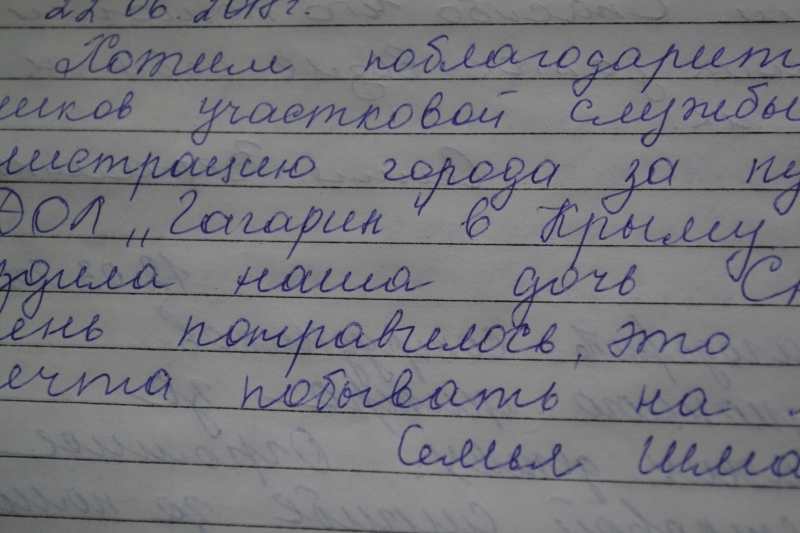 22.06.2018г.
Хотим поблагодарит
иков участковой службы
нистрацию города за пу
ДОЛ „Гагарин" в Крыму
здила наша дочь
ень понравилось, это
ечта побывать на
Семья Шма